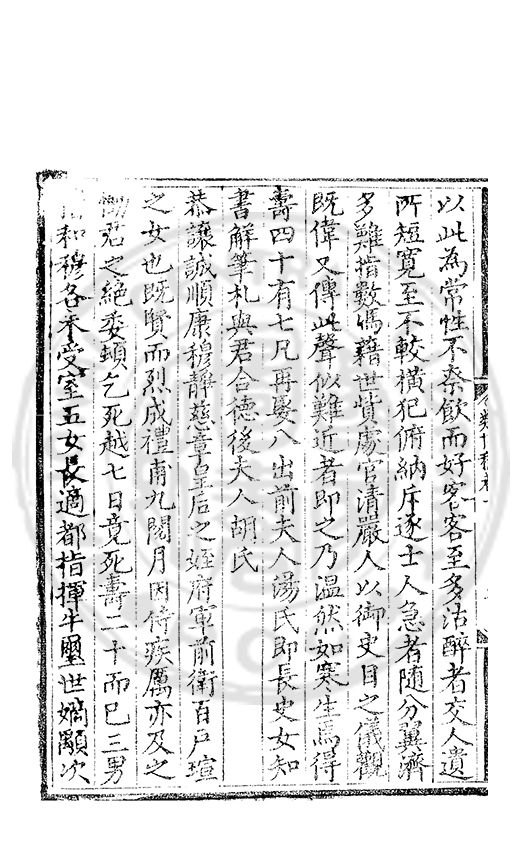 以此為常性不泰飲而好客客至多沽醉者交人遺
所短寬至不較橫犯俯納斥逐士人急者隨分翼濟
多難指數馮藉世貲處官清嚴人以御史目之儀觀
既偉又傳此聲似難近者即之乃溫然如寒生焉得
壽四十有七凡再娶八出前夫人湯氏即長史女知
書解筆札與君合德後夫人胡氏
恭讓誠順康穆靜慈章皇后之姪府軍前衛百戶瑄
之女也既賢而烈成禮甫九閱月因侍疾厲亦及之
君之絕委頓乞死越七日竟死壽二十而已三男
和穆各未受室五女長適都指揮牛璽世嫡顒次